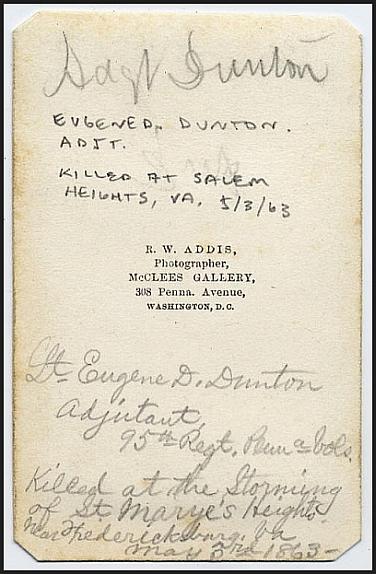 Adgt Dunton
EUGENE D. DUNTON.
ADJT.
KILLED AT SALEM
HEIGHTS, VA. 5/3/63
R. W. ADDIS,
Photographer,
McCLEES GALLERY,
308 Penna. Avenue,
WASHINGTON, D.C.
Lt Eugene D. Dunton
Adjutant,
95th Regt. Penna Vols.
Killed at the Storming
of St Marye's Heights
near Fredericksburg, Va
May 3rd 1863-